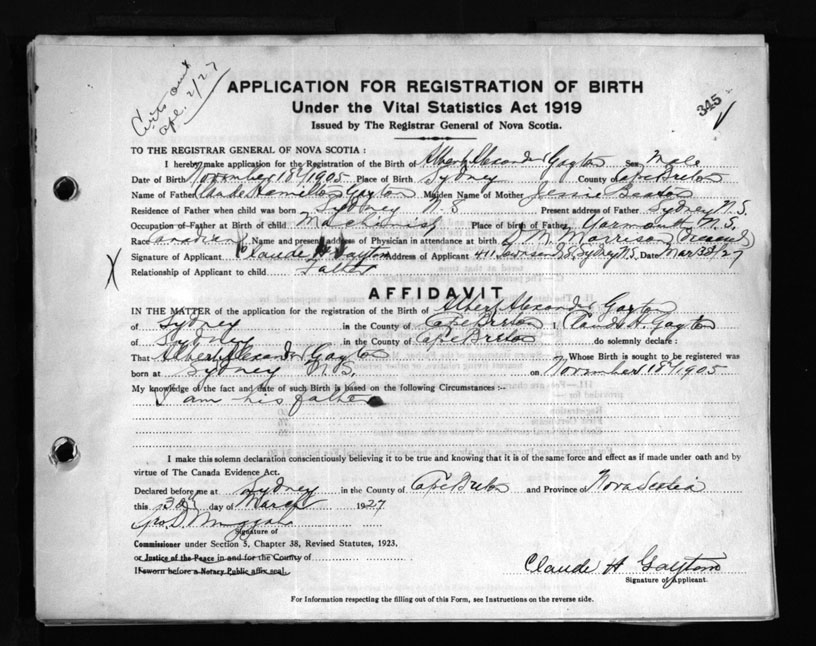 Apl. 2/27
APPLICATION FOR REGISTRATION OF BIRTH
345
Under the Vital Statistics Act 1919
Issued by The Registrar General of Nova Scotia.
TO THE REGISTRAR GENERAL OF NOVA SCOTIA :
I hereby make application for the Registration of the Birth of Albert Alexander Gayton Sex Male
Date of Birth November 18th/1905 Place of Birth Sydney County of Cape Breton
Name of Father Claude Hamilton Gayton Maiden Name of Mother Jessie Beaton
Residence of Father when child was born Sydney N S Present address of Father Sydney N.S.
Occupation of Father at Birth of child Machinist Place of birth of Father Yarmouth N.S.
Race Canadian Name and present address of Physician in attendance at birth. Morrison
Signature of Applicant Claude H Gayton Address of Applicant 411 Sydney N.S. Date Mar 30/27
Relationship of Applicant to child Father
AFFIDAVIT
IN THE MATTER of the application for the registration of the Birth of Albert Alexander Gayton
of Sydney in the County of Cape Breton I, Claude H. Gayton
of Sydney in the County of Cape Breton do solemnly declare :
That Albert Alexander Gayton Whose Birth is sought to be registered was
born at Sydney N.S. on November 18th/1905
My knowledge of the fact and date of such Birth is based on the following Circumstances :-
I am his father
I make this solemn declaration conscientiously believing it to be true and knowing that it is of the same force and effect as if made under oath and by
virtue of The Canada Evidence Act.
Declared before me at Sydney in the County of Cape Breton and Province of Nova Scotia
this 30 day of March 1927
Signature of
Commissioner under Section 5, Chapter 38, Revised Statutes, 1923.
or Justice of the Peace in and for the County of
If sworn before a Notary Public affix seal.
Claude H Gayton
Signature of Applicant.
For Information respecting the filling out of this Form, see Instructions on the reverse side.